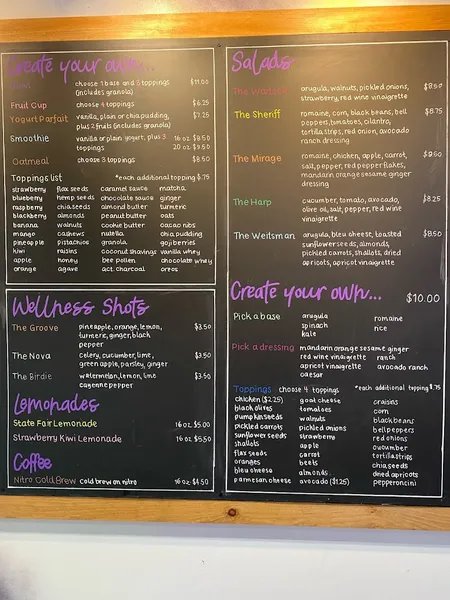 Create your own...
Bowl choose 1 base and 5 toppings $11.00
(includes granola)
Fruit Cup choose 4 toppings $6.25
Yogurt Parfait vanilla, plain or chia pudding, $7.25
plus 2 fruits (includes granola)
Smoothie vanilla or plain yogurt, plus 3 16 oz $8.50
toppings 20 oz $9.50
Oatmeal choose 3 toppings $8.50
Toppings list *each additional topping $.75
strawberry flax seeds caramel sauce matcha
blueberry hemp seeds chocolate sauce ginger
raspberry chia seeds almond butter turmeric
blackberry almonds peanut butter oats
banana walnuts cookie butter cacao nibs
mango cashews nutella chia pudding
pineapple pistachios granola goji berries
kiwi raisins coconut shavings vanilla whey
apple honey bee pollen chocolate whey
orange agave act. charcoal oreos
Wellness Shots
The Groove pineapple, orange, lemon, $3.50
turmeric, ginger, black
pepper
The Nova celery, cucumber, lime, $3.50
green apple, parsley, ginger
The Birdie watermelon, lemon, lime $3.50
cayenne pepper
Lemonades
State Fair Lemonade 16 oz $5.00
Strawberry Kiwi Lemonade 16 oz $5.50
Coffee
Nitro Cold Brew cold brew on nitro 16 oz $4.50
Salads
The Warlock arugula, walnuts, pickled onions, $8.50
strawberry, red wine vinaigrette
The Sheriff romaine, corn, black beans, bell $8.75
peppers, tomatoes, cilantro,
tortilla strips, red onion, avocado
ranch dressing
The Mirage romaine, chicken, apple, carrot, $9.50
salt, pepper, red pepper flakes,
mandarin orange sesame ginger
dressing
The Harp cucumber, tomato, avocado, $8.25
olive oil, salt, pepper, red wine
vinaigrette
The Weitsman arugula, bleu cheese, toasted $8.50
sunflower seeds, almonds,
pickled carrots, shallots, dried
apricots, apricot vinaigrette
Create your own... $10.00
Pick a base arugula romaine
spinach rice
kale
Pick a dressing mandarin orange sesame ginger
red wine vinaigrette ranch
apricot vinaigrette avocado ranch
caesar
Toppings choose 4 toppings *each additional topping $.75
chicken ($2.25) goat cheese craisins
black olives tomatoes corn
pumpkin seeds walnuts black beans
pickled carrots pickled onions bell peppers
sunflower seeds strawberry red onions
shallots apple cucumber
flax seeds carrot tortilla strips
oranges beets chia seeds
bleu cheese almonds dried apricots
parmesan cheese avocado ($1.25) pepperoncini